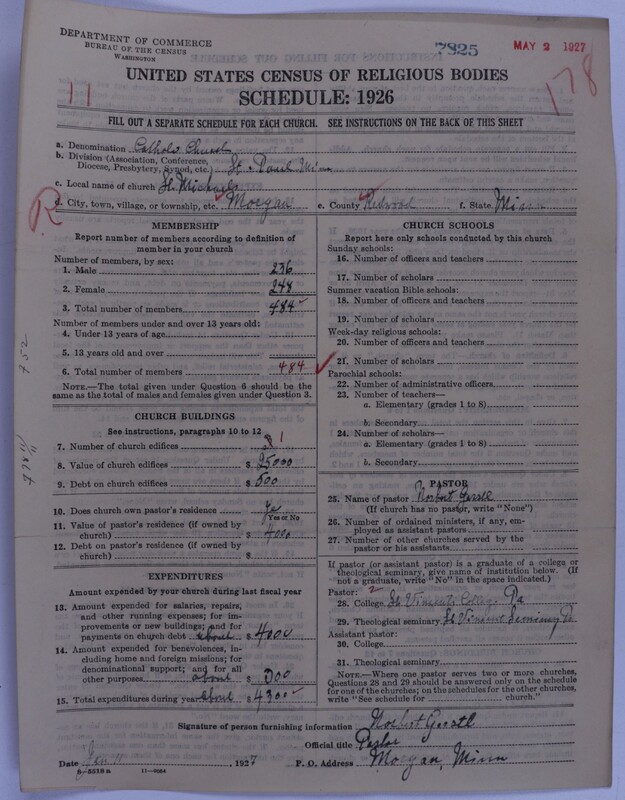 DEPARTMENT OF COMMERCE
BUREAU OF THE CENSUS
WASHINGTON
7825
MAY 2 1927
178
11
UNITED STATES CENSUS OF RELIGIOUS BODIES
SCHEDULE: 1926
FILL OUT A SEPARATE SCHEDULE FOR EACH CHURCH. SEE INSTRUCTIONS ON THE BACK OF THIS SHEET
a. Denomination Catholic Church
b. Division (Association, Conference, Diocese, Presbytery, Synod, etc.) St. Paul Minn
c. Local name of church St. Michaels
R
d. City, town, village, or township, etc. Morgan e. County Redwood f. State Minn
MEMBERSHIP
Report number of members according to definition of member in your church
Number of members, by sex:
1. Male 236
2. Female 248
3. Total number of members 484
Number of members under and over 13 years old:
4. Under 13 years of age
5. 13 years old and over
6. Total number of members 484
NOTE.—The total given under Question 6 should be the same as the total of males and females given under Question 3.
752
CHURCH BUILDINGS
See instructions, paragraphs 10 to 12
7. Number of church edifices 1
8. Value of church edifices $ 25000
9. Debt on church edifices $ 500
10. Does church own pastor's residence Yes
Yes or No
11. Value of pastor's residence (if owned by church) $ 4000
12. Debt on pastor's residence (if owned by church) $
EXPENDITURES
Amount expended by your church during last fiscal year
13. Amount expended for salaries, repairs, and other running expenses; for improvements or new buildings; and for payments on church debt about $ 4000
14. Amount expended for benevolences, including home and foreign missions; for denominational support; and for all other purposes about $ 300
15. Total expenditures during year about $ 4300
CHURCH SCHOOLS
Report here only schools conducted by this church
Sunday schools:
16. Number of officers and teachers
17. Number of scholars
Summer vacation Bible schools:
18. Number of officers and teachers
19. Number of scholars
Week-day religious schools:
20. Number of officers and teachers
21. Number of scholars
Parochial schools:
22. Number of administrative officers
23. Number of teachers—
a. Elementary (grades 1 to 8)
b. Secondary
24. Number of scholars—
a. Elementary (grades 1 to 8)
b. Secondary
PASTOR
25. Name of pastor Norbert
(If church has no pastor, write "None")
26. Number of ordained ministers, if any, employed as assistant pastors
27. Number of other churches served by the pastor or his assistants
If pastor (or assistant pastor) is a graduate of a college or theological seminary, give name of institution below. (If not a graduate, write "No" in the space indicated.)
Pastor: 2
28. College St Vincent College Pa
29. Theological seminary St Vincent Seminary Pa
Assistant pastor:
30. College
31. Theological seminary
NOTE.—Where one pastor serves two or more churches, Questions 28 and 29 should be answered only on the schedule for one of the churches; on the schedules for the other churches, write "See schedule for church."
Signature of person furnishing information Norbert
Official title Pastor
Date Jan 11, 1927 P. O. Address Morgan, Minn
8-5518a 11-9054